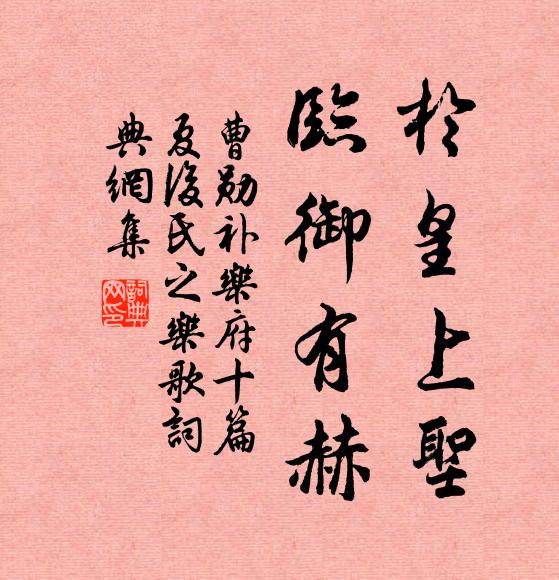 於皇上聖
臨御有赫
曹勛补樂府十篇
夏後氏之樂歌詞
典網集
詞典網印